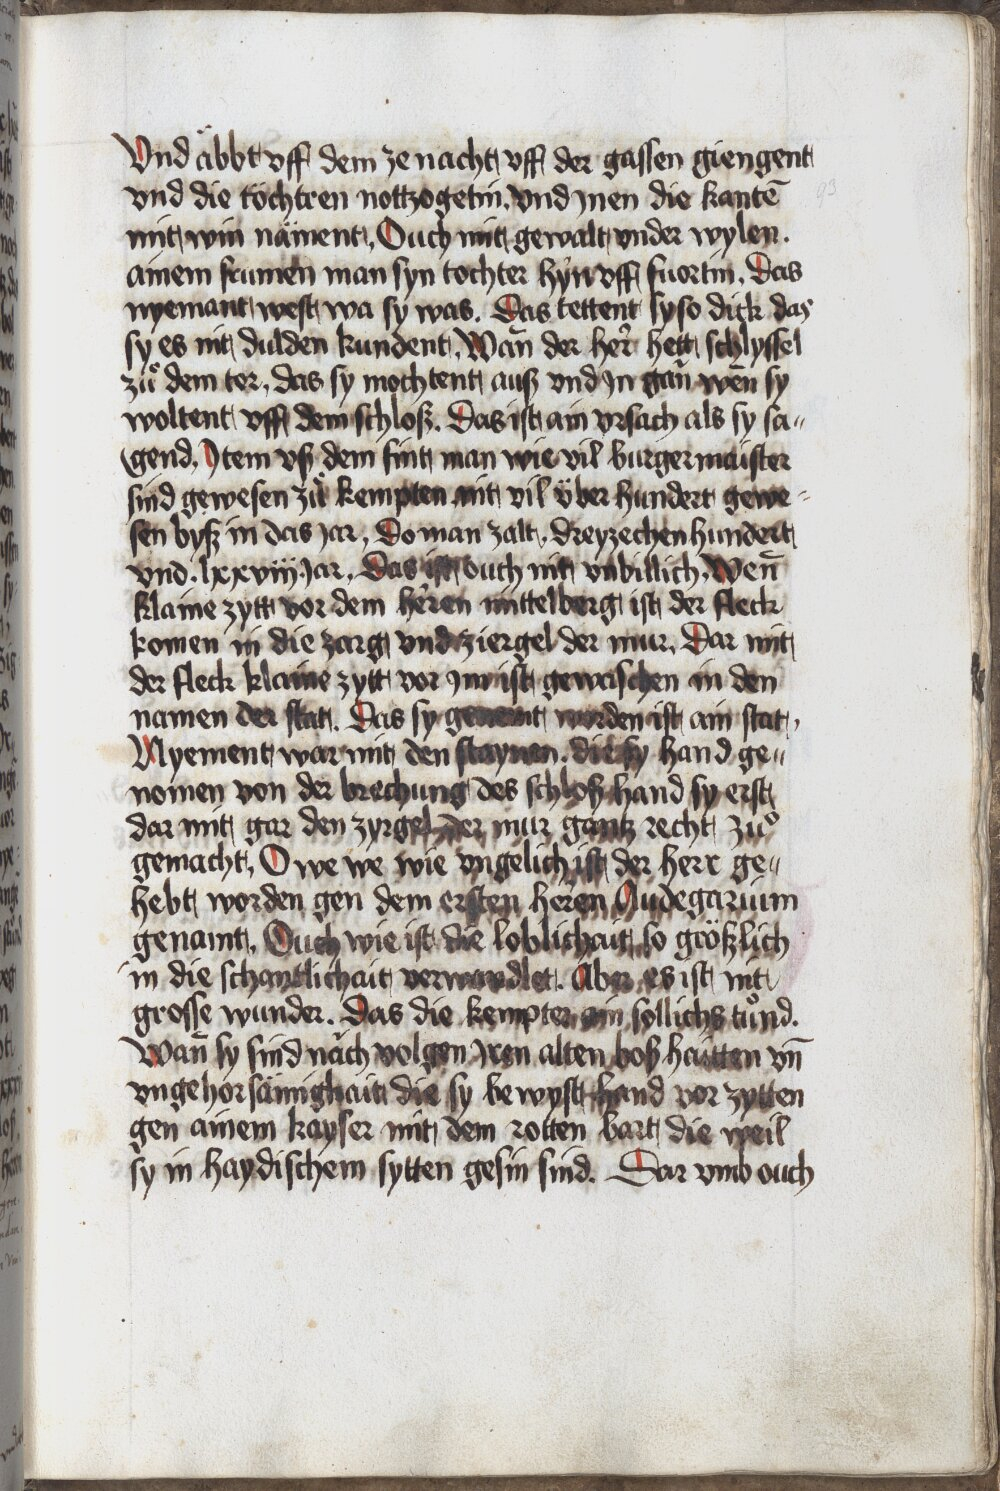 Vnd äbbt vff dem ze nacht vff der gassen giengent
vnd die töchtren nottzogetin, vnd jnen die kantē
mit win näment, Ouch mit gewalt vnder wylen.
ainem frumen man syn tochter hyn vff fuortin, Das
nyemant west wa sy was. Das tettent sy so dick das
sy es nit dulden kundent, Wan̄ der her hett schlyssel
zuͦ dem tor, das sy mochtent auß vnd jn gan̄ wen̄ sy
woltent vff dem schloß. Das ist ain vrsach als sy sa„
gend, Jtem vß dem fint man wie vil burgermaister
sind gewesen zuͦ kempten nit vil über hundert gewe„
sen byß in das jar, Do man zalt, dreyzechen hundert
vnd. lxxviij. Jar, Das ist ouch nit vnbillich, Wen̄
klaine zytt vor dem heren mittelberg ist der fleck
komen in die zarg vnd ziergel der mur, Dar mit
der fleck klaine zytt vor jm ist gewaschen in den
namen der stat. Das sy genent worden ist ain stat,
Nyement war mit den staynen. die sy hand ge„
nomen von der brechung des schloß hand sy erst
dar mit gar den zyrgel der mur gantz recht zuͦ
gemacht, O we we wie vngelich ist der herr ge„
hebt worden gen dem ersten heren Audegarium
genamt, Ouch wie ist die loblichait so größlich
in die schantlichait verwandlet. Aber es ist nit
grosse wunder. Das die kempter ain sollichs tuͦnd.
Wan̄ sy sind näch volgen jren alten boßhaitten vn̄
vngehorsamighait die sy bewyst hand vor zytten
gen ainem kayser mit dem rotten bart die weil
sy in haydischem sytten gesin sind. Dar vmb ouch
93